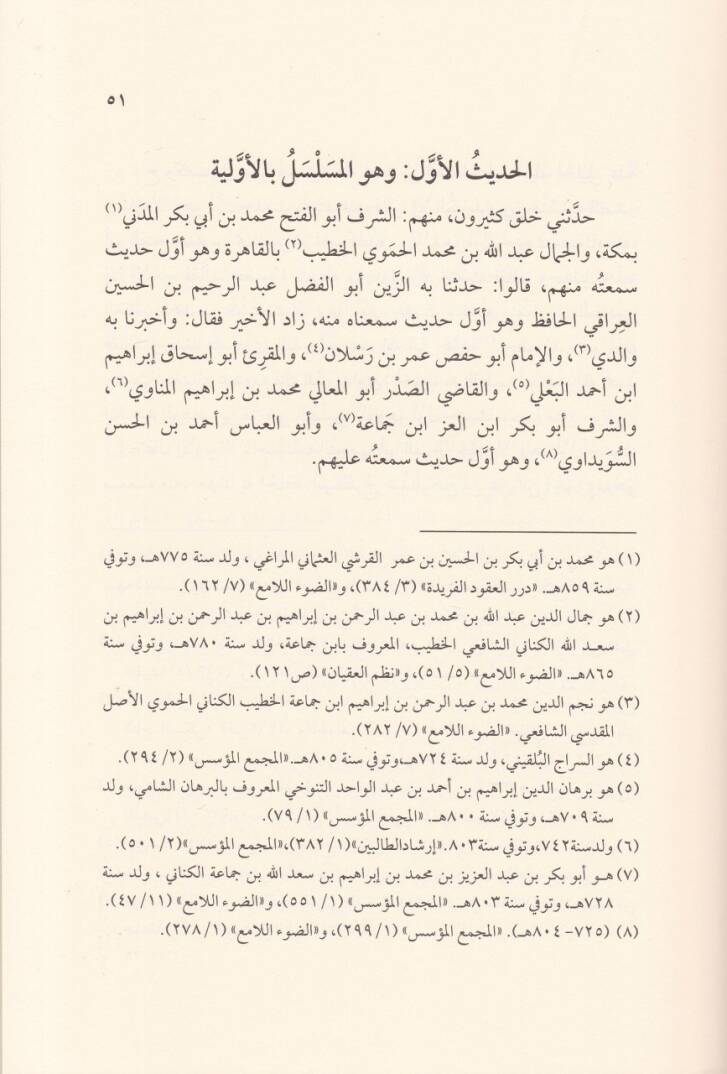 ٥١
الحديثُ الأوَّل: وهو المسَلْسَلُ بالأوَّلية
حدَّثني خلق كثيرون، منهم: الشرف أبو الفتح محمد بن أبي بكر المدَني(١)
بمكة، والجمال عبد الله بن محمد الحمَوي الخطيب(٢) بالقاهرة وهو أوَّل حديث
سمعتُه منهم، قالوا: حدثنا به الزَّين أبو الفضل عبد الرحيم بن الحسين
العِراقي الحافظ وهو أوَّل حديث سمعناه منه، زاد الأخير فقال: وأخبرنا به
والدي(٣)، والإمام أبو حفص عمر بن رَسْلان(٤)، والمقرِئ أبو إسحاق إبراهيم
ابن أحمد البَعْلي(٥)، والقاضي الصَدْر أبو المعالي محمد بن إبراهيم المناوي(٦)،
والشرف أبو بكر ابن العز ابن جَماعة(٧)، وأبو العباس أحمد بن الحسن
السُّوَيداوي(٨)، وهو أوَّل حديث سمعتُه عليهم.
(١) هو محمد بن أبي بكر بن الحسين بن عمر القرشي العثماني المراغي ، ولد سنة ٧٧٥هـ، وتوفي
سنة ٨٥٩هـ. «درر العقود الفريدة» (٣/ ٣٨٤)، و«الضوء اللامع» (٧/ ١٦٢).
(٢) هو جمال الدين عبد الله بن محمد بن عبد الرحمن بن إبراهيم بن عبد الرحمن بن إبراهيم بن
سعد الله الكناني الشافعي الخطيب، المعروف بابن جماعة، ولد سنة ٧٨٠هـ، وتوفي سنة
٨٦٥هـ. «الضوء اللامع» (٥/ ٥١)، و«نظم العقيان» (ص١٢١).
(٣) هو نجم الدين محمد بن عبد الرحمن بن إبراهيم ابن جماعة الخطيب الكناني الحموي الأصل
المقدسي الشافعي. «الضوء اللامع» (٧/ ٢٨٢).
(٤) هو السراج البُلقيني، ولد سنة ٧٢٤هـ،وتوفي سنة ٨٠٥هـ.«المجمع المؤسس» (٢/ ٢٩٤).
(٥) هو برهان الدين إبراهيم بن أحمد بن عبد الواحد التنوخي المعروف بالبرهان الشامي، ولد
سنة ٧٠٩هـ، وتوفي سنة ٨٠٠هـ. «المجمع المؤسس» (١/ ٧٩).
(٦) ولدسنة٧٤٢،وتوفي سنة٨٠٣.«إرشادالطالبين»(١/ ٣٨٢)،«المجمع المؤسس»(٢/ ٥٠١).
(٧) هـو أبو بكر بن عبد العزيز بن محمد بن إبراهيم بن سعد الله بن جماعة الكناني ، ولد سنة
٧٢٨هـ، وتوفي سنة ٨٠٣هـ. «المجمع المؤسس» (١/ ٥٥١)، و«الضوء اللامع» (١١/ ٤٧).
(٨) (٧٢٥- ٨٠٤هـ). «المجمع المؤسس» (١/ ٢٩٩)، و«الضوء اللامع» (١/ ٢٧٨).